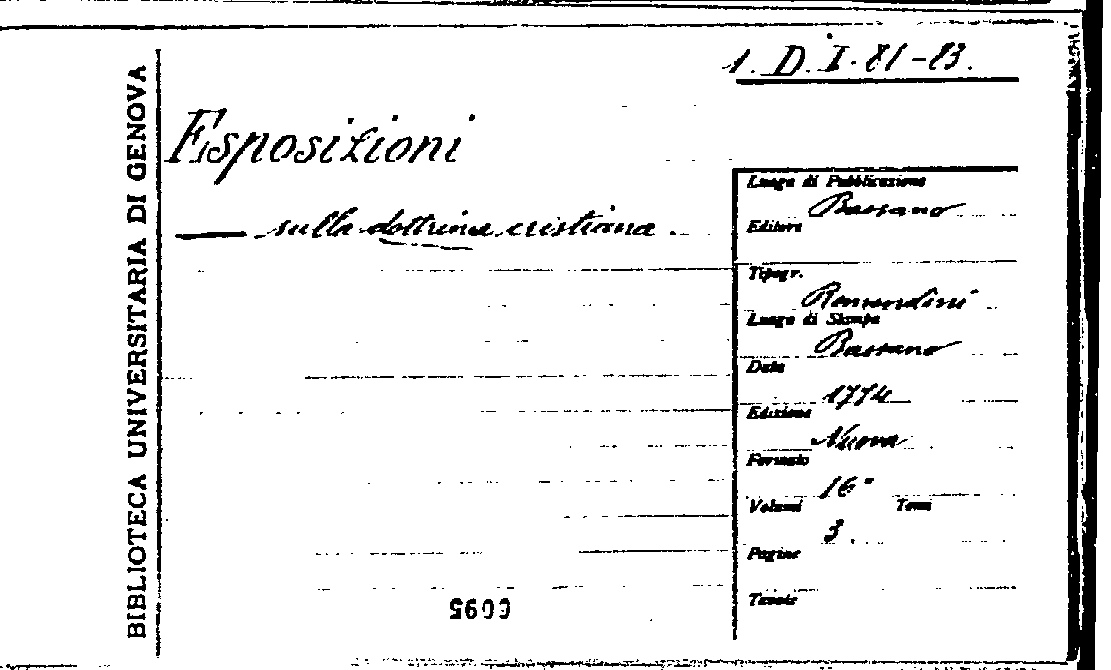 BIBLIOTECA UNIVERSITARIA DI GENOVA
1. D. I. 81-83.
Esposizioni
— sulla dottrina cristiana.
Luogo di Pubblicazione
Bassano
Editore
Tipogr.
Remondini
Luogo di Stampa
Bassano
Data
1774
Edizione
Nuova
Formato
16°
Volumi Tomi
3.
Pagine
Tavole